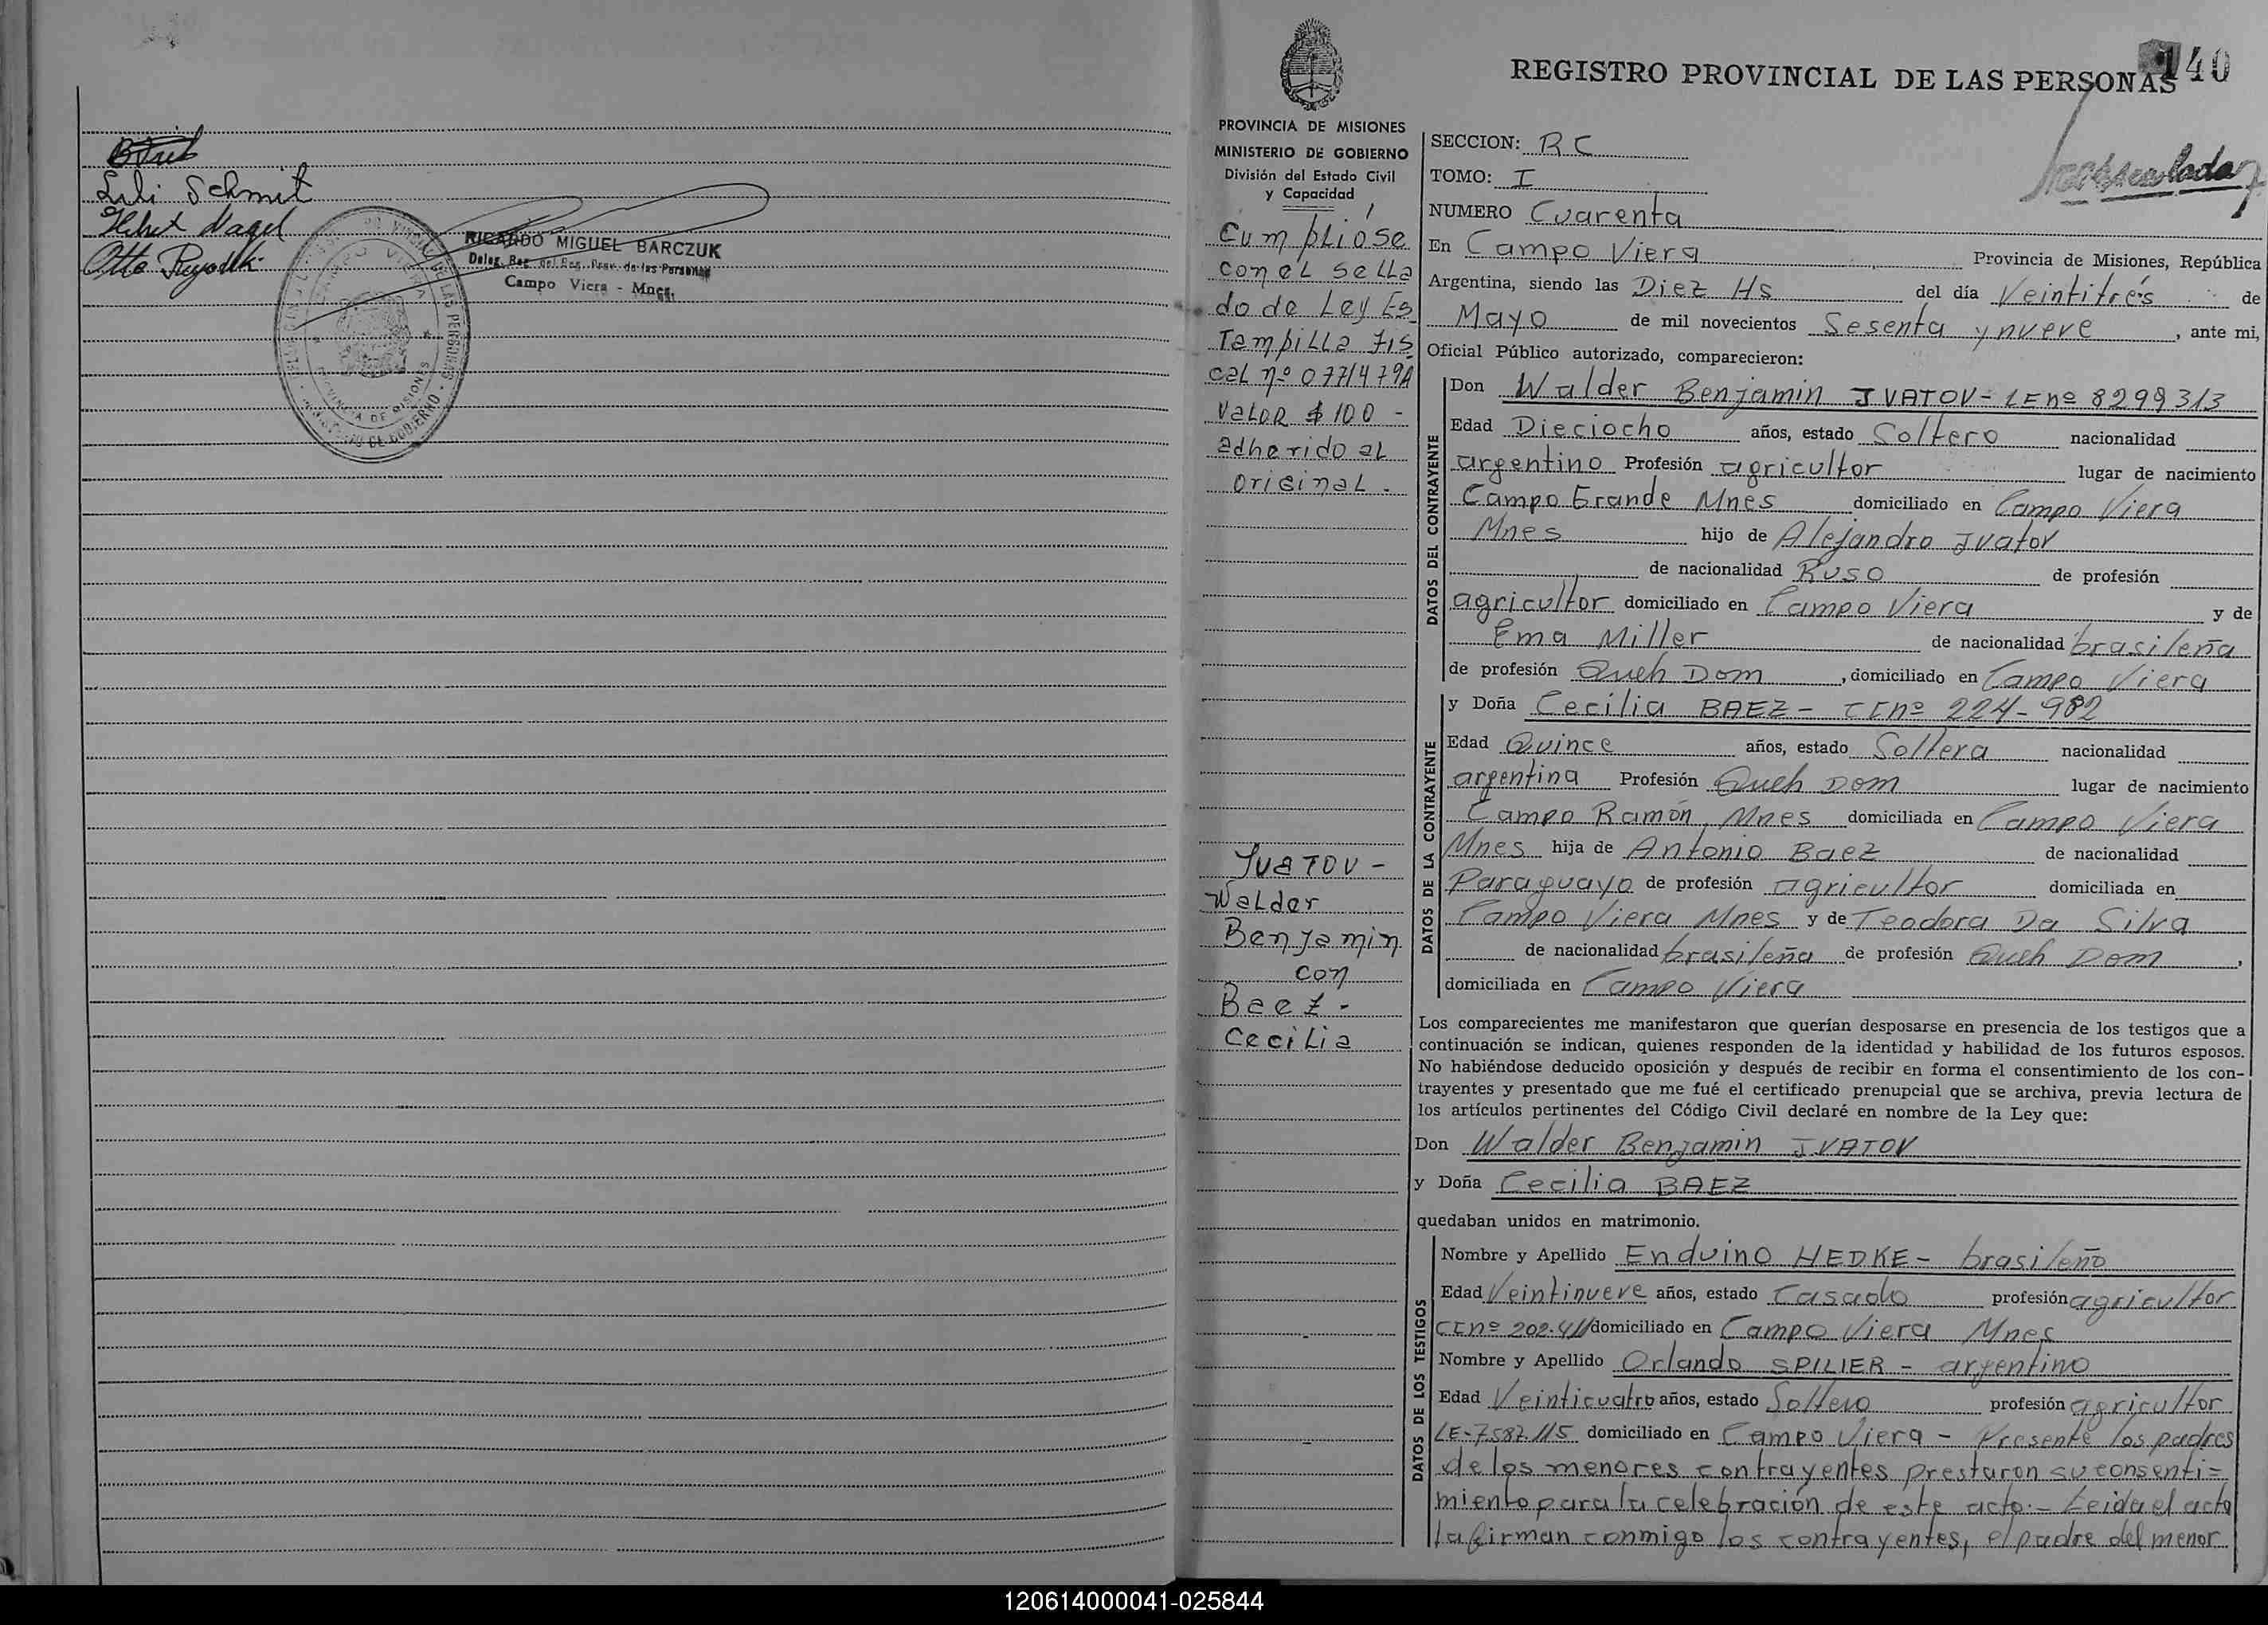 Lili Schmit
RICARDO MIGUEL BARCZUK
Deleg. Reg. del Reg. Prov. de las Personas
Campo Viera - Mnes.
CAMPO VIERA
PROVINCIA DE MISIONES
140
REGISTRO PROVINCIAL DE LAS PERSONAS
PROVINCIA DE MISIONES
MINISTERIO DE GOBIERNO
División del Estado Civil
y Capacidad
Cumplióse
con el sella
do de Ley Es
Tampilla Fis
cal nº 077147 9A
Valor $ 100 -
adherido al
original.
IVATOV -
Walder
Benjamin
con
Baez -
Cecilia
SECCION: RC
TOMO: I
NUMERO Cuarenta
En Campo Viera Provincia de Misiones, República
Argentina, siendo las Diez Hs del día Veintitrés de
Mayo de mil novecientos Sesenta y nueve, ante mi,
Oficial Público autorizado, comparecieron:
DATOS DEL CONTRAYENTE
Don Walder Benjamin IVATOV - LE nº 8299313
Edad Dieciocho años, estado Soltero nacionalidad
argentino Profesión agricultor lugar de nacimiento
Campo Grande Mnes domiciliado en Campo Viera
Mnes hijo de Alejandro Ivatov
de nacionalidad Ruso de profesión
agricultor domiciliado en Campo Viera y de
Ema Miller de nacionalidad brasileña
de profesión Queh Dom, domiciliado en Campo Viera
DATOS DE LA CONTRAYENTE
y Doña Cecilia BAEZ - CI nº 224-982
Edad Quince años, estado Soltera nacionalidad
argentina Profesión Queh Dom lugar de nacimiento
Campo Ramón Mnes domiciliada en Campo Viera
Mnes hija de Antonio Baez de nacionalidad
Paraguayo de profesión agricultor domiciliada en
Campo Viera Mnes y de Teodora Da Silva
de nacionalidad brasileña de profesión Queh Dom,
domiciliada en Campo Viera
Los comparecientes me manifestaron que querían desposarse en presencia de los testigos que a
continuación se indican, quienes responden de la identidad y habilidad de los futuros esposos.
No habiéndose deducido oposición y después de recibir en forma el consentimiento de los con-
trayentes y presentado que me fué el certificado prenupcial que se archiva, previa lectura de
los artículos pertinentes del Código Civil declaré en nombre de la Ley que:
Don Walder Benjamin IVATOV
y Doña Cecilia BAEZ
quedaban unidos en matrimonio.
DATOS DE LOS TESTIGOS
Nombre y Apellido Enduino HEDKE - brasileño
Edad Veintinueve años, estado Casado profesión agricultor
CI nº 202.411 domiciliado en Campo Viera Mnes
Nombre y Apellido Orlando SPILIER - argentino
Edad Veinticuatro años, estado Soltero profesión agricultor
LE-7587.115 domiciliado en Campo Viera - Presente los padres
de los menores contrayentes prestaron su consenti=
miento para la celebración de este acto.- Leida el acta
la firman conmigo los contrayentes, el padre del menor
120614000041-025844